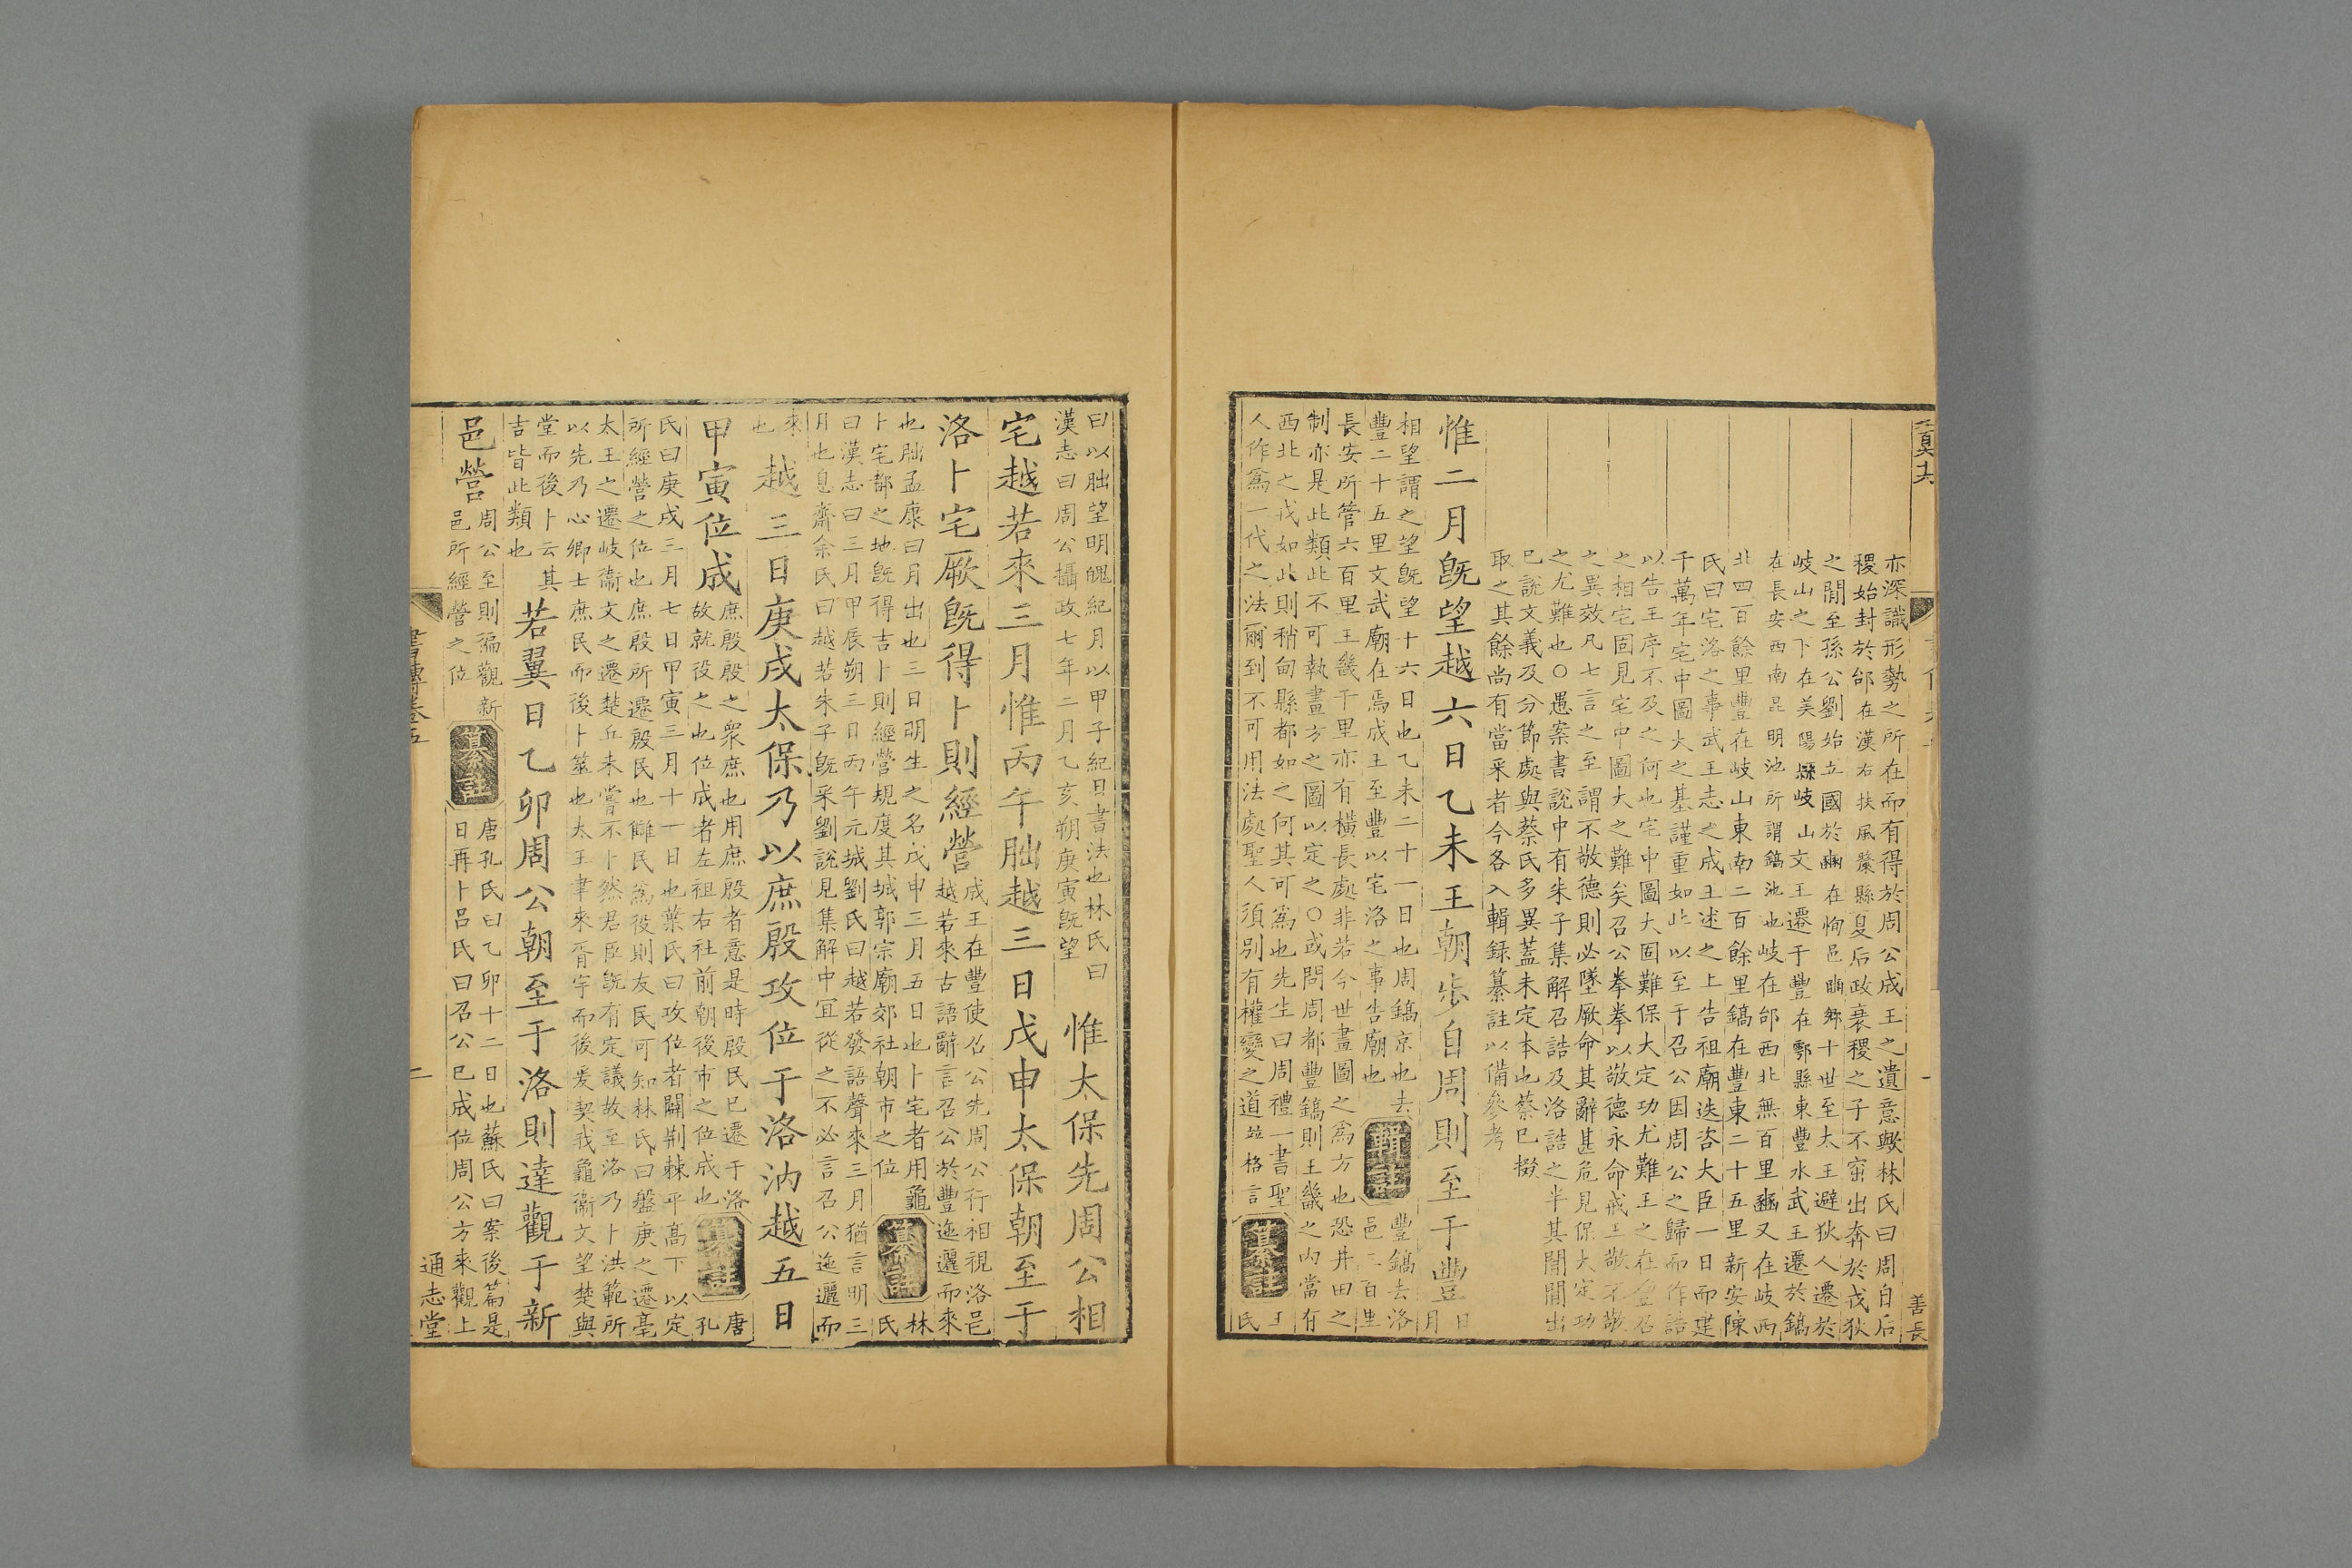 亦深識形勢之所在而有得於周公成王之遺意歟林氏曰周自后
稷始封於邰在漢右扶風斄縣夏后政衰稷之子不窋出奔於戎狄
之間至孫公劉始立國於豳在栒邑豳鄉十世至大王避狄人遷於
岐山之下在美陽縣岐山文王遷于豐在鄠縣東豐水武王遷於鎬
在長安西南昆明池所謂鎬池也岐在邰西北無百里豳又在岐西
北四百餘里豐在岐山東南二百餘里鎬在豐東二十五里新安陳
氏曰宅洛之事武王志之成王述之上告祖廟迭咨大臣一日而建
千萬年宅中圖大之基謹重如此以至于召公因周公之歸而作誥
以告王序不及之何也宅中圖大固難保大定功尤難王之在豐召
之相宅固見宅中圖大之難矣召公拳拳以敬德永命戒王敬不敬
之異效凡七言之至謂不敬德則必墜厥命其辭甚危見保大定功
之尤難也○愚案書說中有朱子集解召誥及洛誥之半其間間出
已說文義及分節處與蔡氏多異蓋未定本也蔡已掇
取之其餘尚有當采者今各入輯録纂註以備參考
惟二月旣望越六日乙未王朝步自周則至于豐日月
相望謂之望旣望十六日也乙未二十一日也周鎬京也去
豐二十五里文武廟在焉成王至豐以宅洛之事告廟也
輯註
豐鎬去洛
邑三百里
長安所管六百里王畿千里亦有橫長處非若今世畫圖之爲方也恐井田之
制亦是此類此不可執畫方之圖以定之○或問周都豐鎬則王畿之内當有
西北之戎如此則稍甸縣都如之何其可爲也先生曰周禮一書聖
人作爲一代之法爾到不可用法處聖人須別有權變之道並格言
纂註
王
氏
善長
曰以朏望明魄紀月以甲子紀日書法也林氏曰
漢志曰周公攝政七年二月乙亥朔庚寅旣望
惟太保先周公相
宅越若來三月惟丙午朏越三日戊申太保朝至于
洛卜宅厥旣得卜則經營
成王在豐使召公先周公行相視洛邑
越若來古語辭言召公於豐迤邐而來
也朏孟康曰月出也三日明生之名戊申三月五日也卜宅者用龜
卜宅都之地旣得吉卜則經營規度其城郭宗廟郊社朝市之位
纂註
林
氏
曰漢志曰三月甲辰朔三日丙午元城劉氏曰越若發語聲來三月猶言明三
月也息齋余氏曰越若朱子旣采劉說見集解中宜從之不必言召公迤邐而
來
也
越三日庚戌太保乃以庶殷攻位于洛汭越五日
甲寅位成
庶殷殷之衆庶也用庶殷者意是時殷民已遷于洛
故就役之也位成者左祖右社前朝後市之位成也
纂註
唐
孔
氏曰庚戌三月七日甲寅三月十一日也葉氏曰攻位者闢荆棘平高下以定
所經營之位也庶殷所遷殷民也雖民爲役則友民可知林氏曰盤庚之遷亳
太王之遷岐衞文之遷楚丘未嘗不卜然君臣旣有定議故至洛乃卜洪範所
以先乃心卿士庶民而後卜筮也太王聿來胥宇而後爰契我龜衞文望楚與
堂而後卜云其
吉皆此類也
若翼日乙卯周公朝至于洛則達觀于新
邑營
周公至則徧觀新
邑所經營之位
纂註
唐孔氏曰乙卯十二日也蘇氏曰案後篇是
日再卜呂氏曰召公已成位周公方來觀上
書傳卷五
二
通志堂